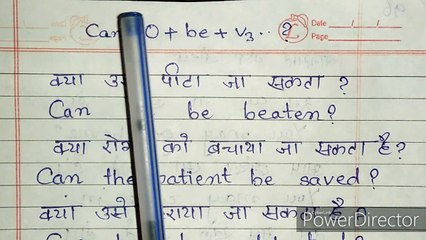 Can O + be + V3 .. ?
Date
Page
क्या पीटा जा सकता ?
Can be beaten?
क्या को बचाया जा सकता है?
Can the patient be saved?
क्या उसे जा सकता है ?
PowerDirector